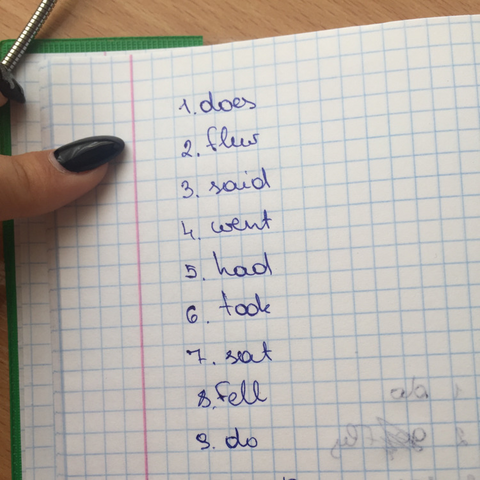 1. does
2. flew
3. said
4. went
5. had
6. took
7. sat
8. fell
9. do